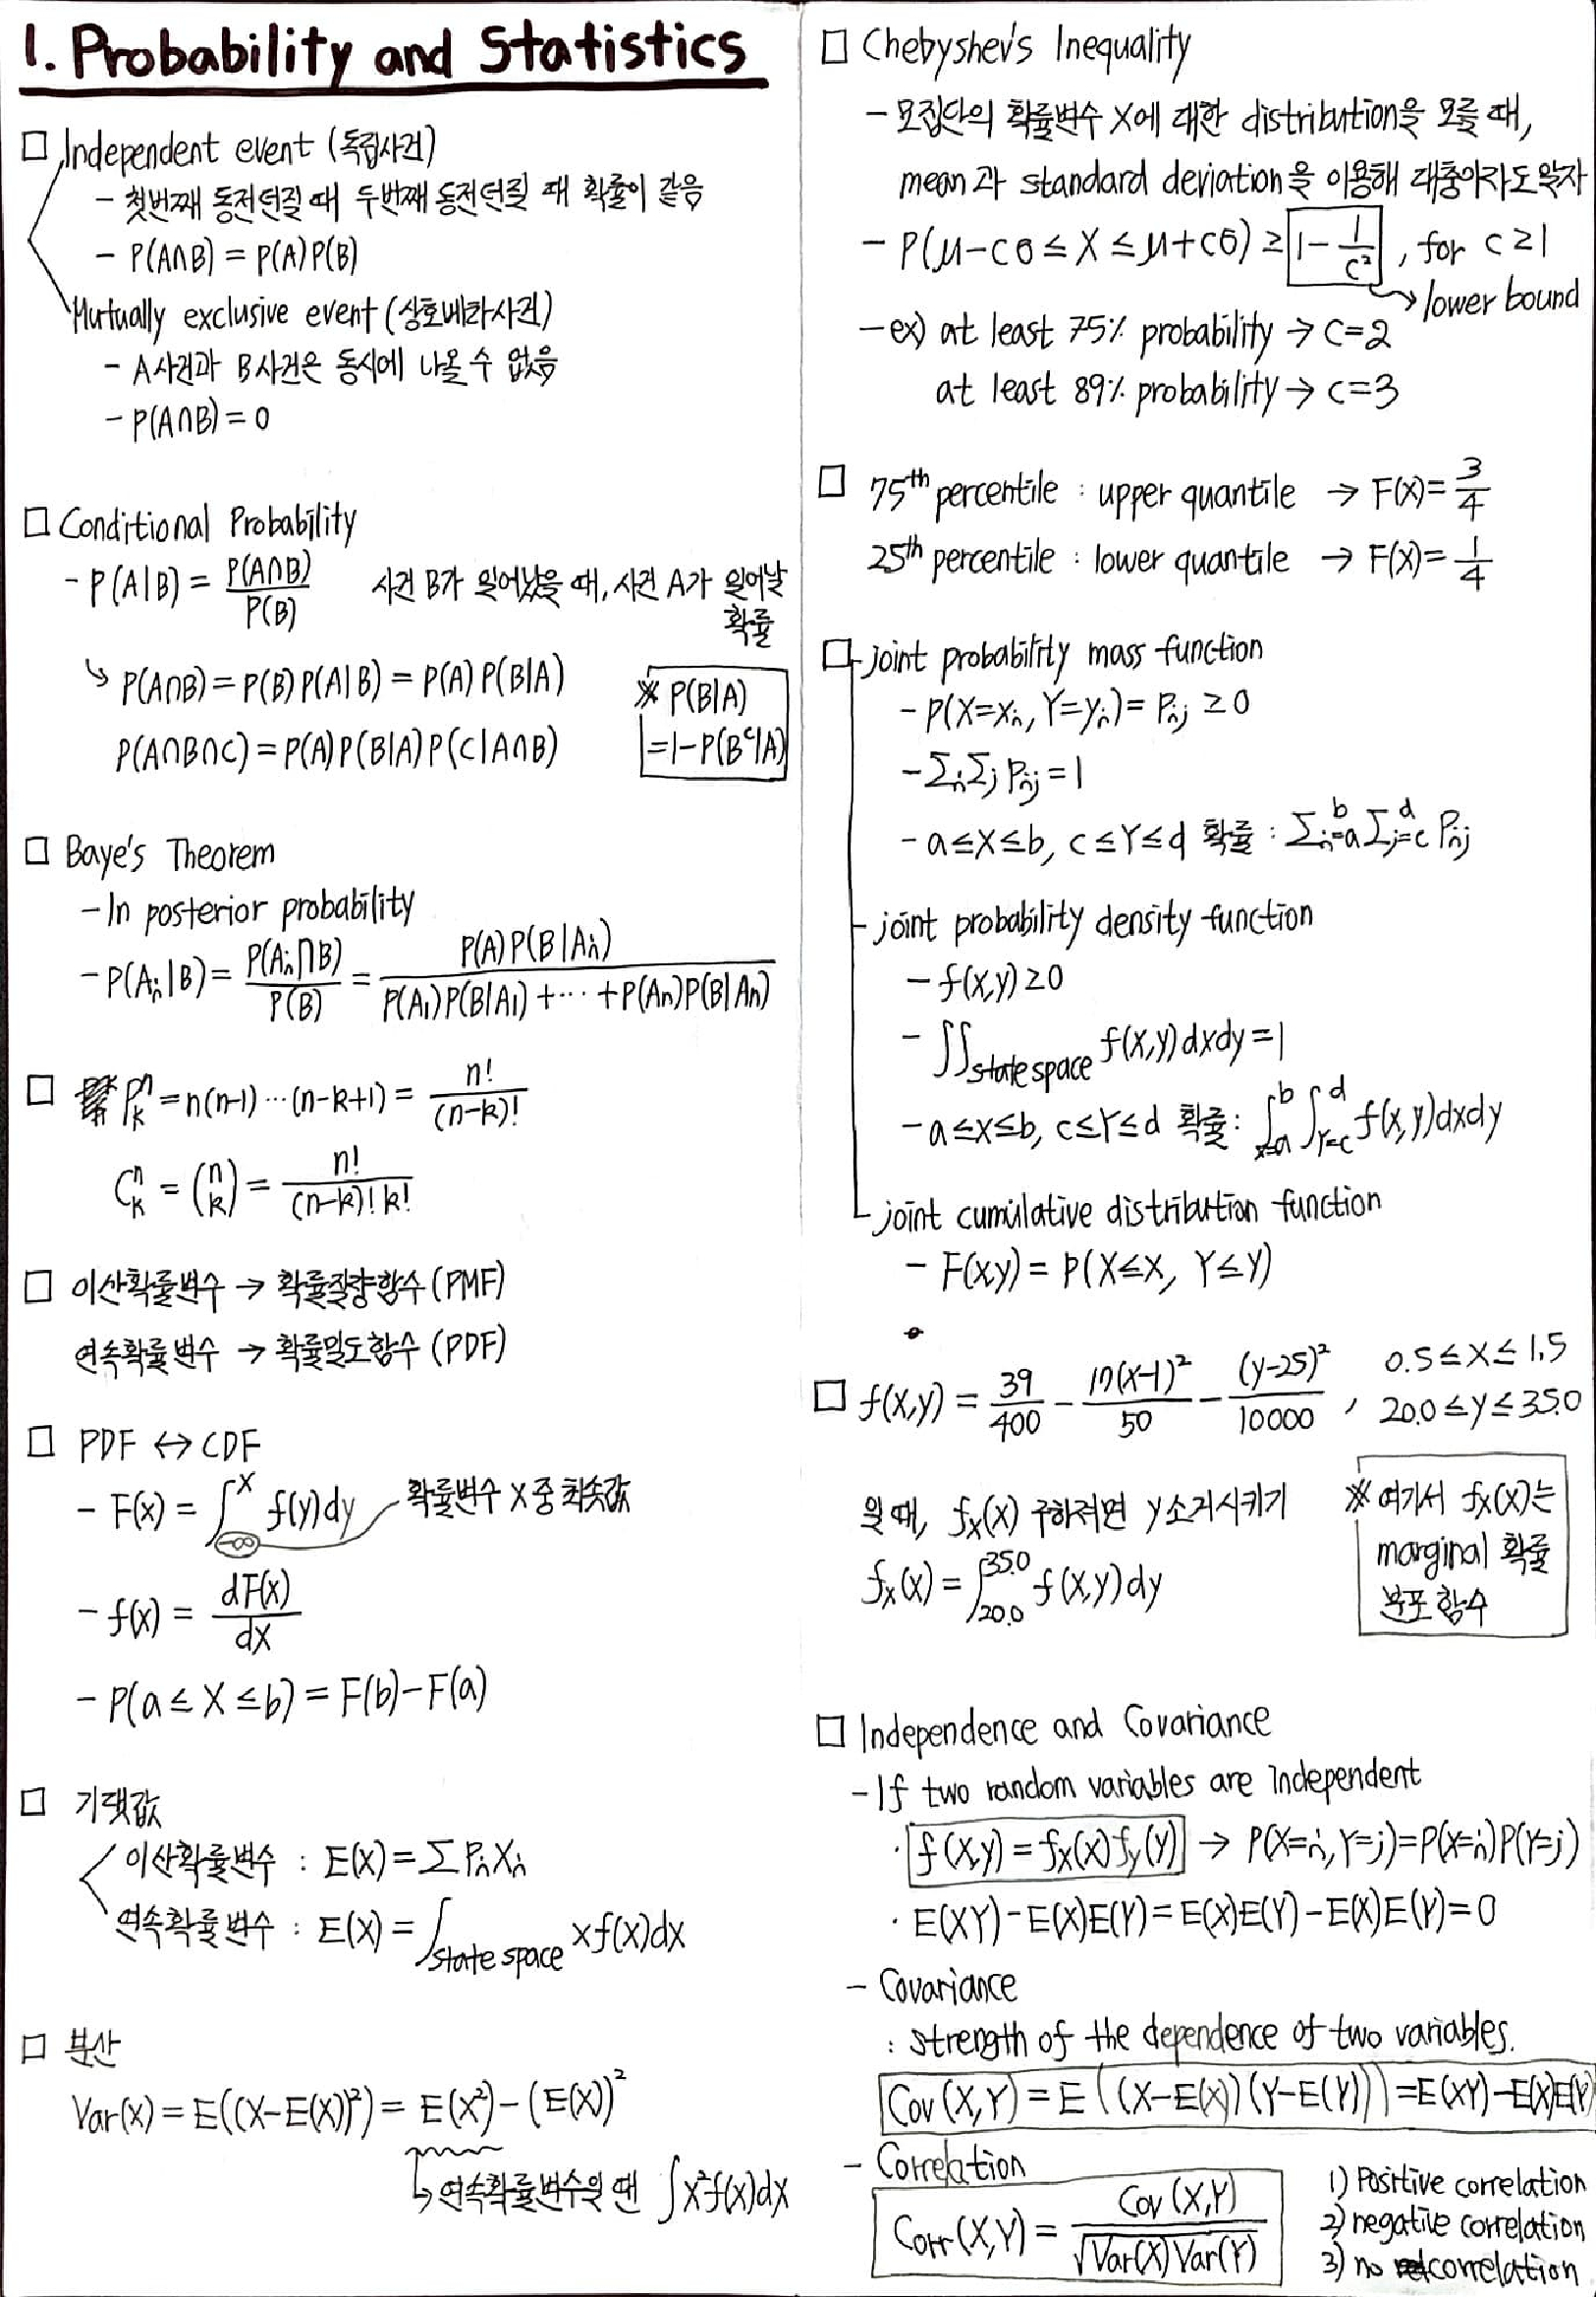 1. Probability and Statistics
□ Independent event (독립사건)
- 첫번째 동전던질 때 두번째 동전던질 때 확률이 같음
- P(A∩B) = P(A)P(B)
Mutually exclusive event (상호배타사건)
- A사건과 B사건은 동시에 나올 수 없음
- P(A∩B) = 0
□ Conditional Probability
- P(A|B) = P(A∩B)/P(B) 사건 B가 일어났을 때, 사건 A가 일어날 확률
↳ P(A∩B) = P(B)P(A|B) = P(A)P(B|A)
P(A∩B∩C) = P(A)P(B|A)P(C|A∩B)
※ P(B|A)
=1-P(Bᶜ|A)
□ Baye's Theorem
- In posterior probability
- P(Aᵢ|B) = P(Aᵢ∩B)/P(B) = P(A)P(B|Aᵢ)/(P(A₁)P(B|A₁) + ⋯ + P(An)P(B|An))
□ Pₖⁿ = n(n-1) ⋯ (n-k+1) = n!/(n-k)!
Cₖⁿ = (n k) = n!/((n-k)! k!)
□ 이산확률변수 → 확률질량함수 (PMF)
연속확률변수 → 확률밀도함수 (PDF)
□ PDF ↔ CDF
- F(x) = ∫_{-∞}^{x} f(y)dy 확률변수 X중 최솟값
- f(x) = dF(x)/dx
- P(a ≤ X ≤ b) = F(b) - F(a)
□ 기댓값
이산확률변수 : E(X) = Σ PᵢXᵢ
연속확률변수 : E(X) = ∫_{state space} xf(x)dx
□ 분산
Var(X) = E((X-E(X))²) = E(X²) - (E(X))²
↳ 연속확률변수일 땐 ∫x²f(x)dx
□ Chebyshev's Inequality
- 모집단의 확률변수 X에 대한 distribution을 모를 때,
mean과 standard deviation을 이용해 대충이라도 알자
- P(μ-cσ ≤ X ≤ μ+cσ) ≥ 1 - 1/c² , for c ≥ 1
→ lower bound
- ex) at least 75% probability → c=2
at least 89% probability → c=3
□ 75th percentile : upper quantile → F(x) = 3/4
25th percentile : lower quantile → F(x) = 1/4
□ joint probability mass function
- P(X=xᵢ, Y=yᵢ) = Pᵢⱼ ≥ 0
- ΣᵢΣⱼ Pᵢⱼ = 1
- a≤X≤b, c≤Y≤d 확률 : Σ_{i=a}^{b} Σ_{j=c}^{d} Pᵢⱼ
joint probability density function
- f(x,y) ≥ 0
- ∬_{state space} f(x,y)dxdy = 1
- a≤X≤b, c≤Y≤d 확률 : ∫_{x=a}^{b} ∫_{Y=c}^{d} f(x,y)dxdy
joint cumulative distribution function
- F(x,y) = P(X≤x, Y≤y)
□ f(x,y) = 39/400 - 17(x-1)²/50 - (y-25)²/10000 , 0.5 ≤ x ≤ 1.5
20.0 ≤ y ≤ 35.0
일 때, fₓ(x) 구하려면 y소거시키기
fₓ(x) = ∫_{20.0}^{35.0} f(x,y)dy
※ 여기서 fₓ(x)는
marginal 확률
분포함수
□ Independence and Covariance
- If two random variables are independent
· f(x,y) = fₓ(x)fy(y) → P(X=i, Y=j)=P(X=i)P(Y=j)
· E(XY) - E(X)E(Y) = E(X)E(Y) - E(X)E(Y) = 0
- Covariance
: strength of the dependence of two variables.
Cov(X,Y) = E((X-E(X))(Y-E(Y))) = E(XY) - E(X)E(Y)
- Correlation
Corr(X,Y) = Cov(X,Y)/√(Var(X)Var(Y))
1) Positive correlation
2) negative correlation
3) no correlation